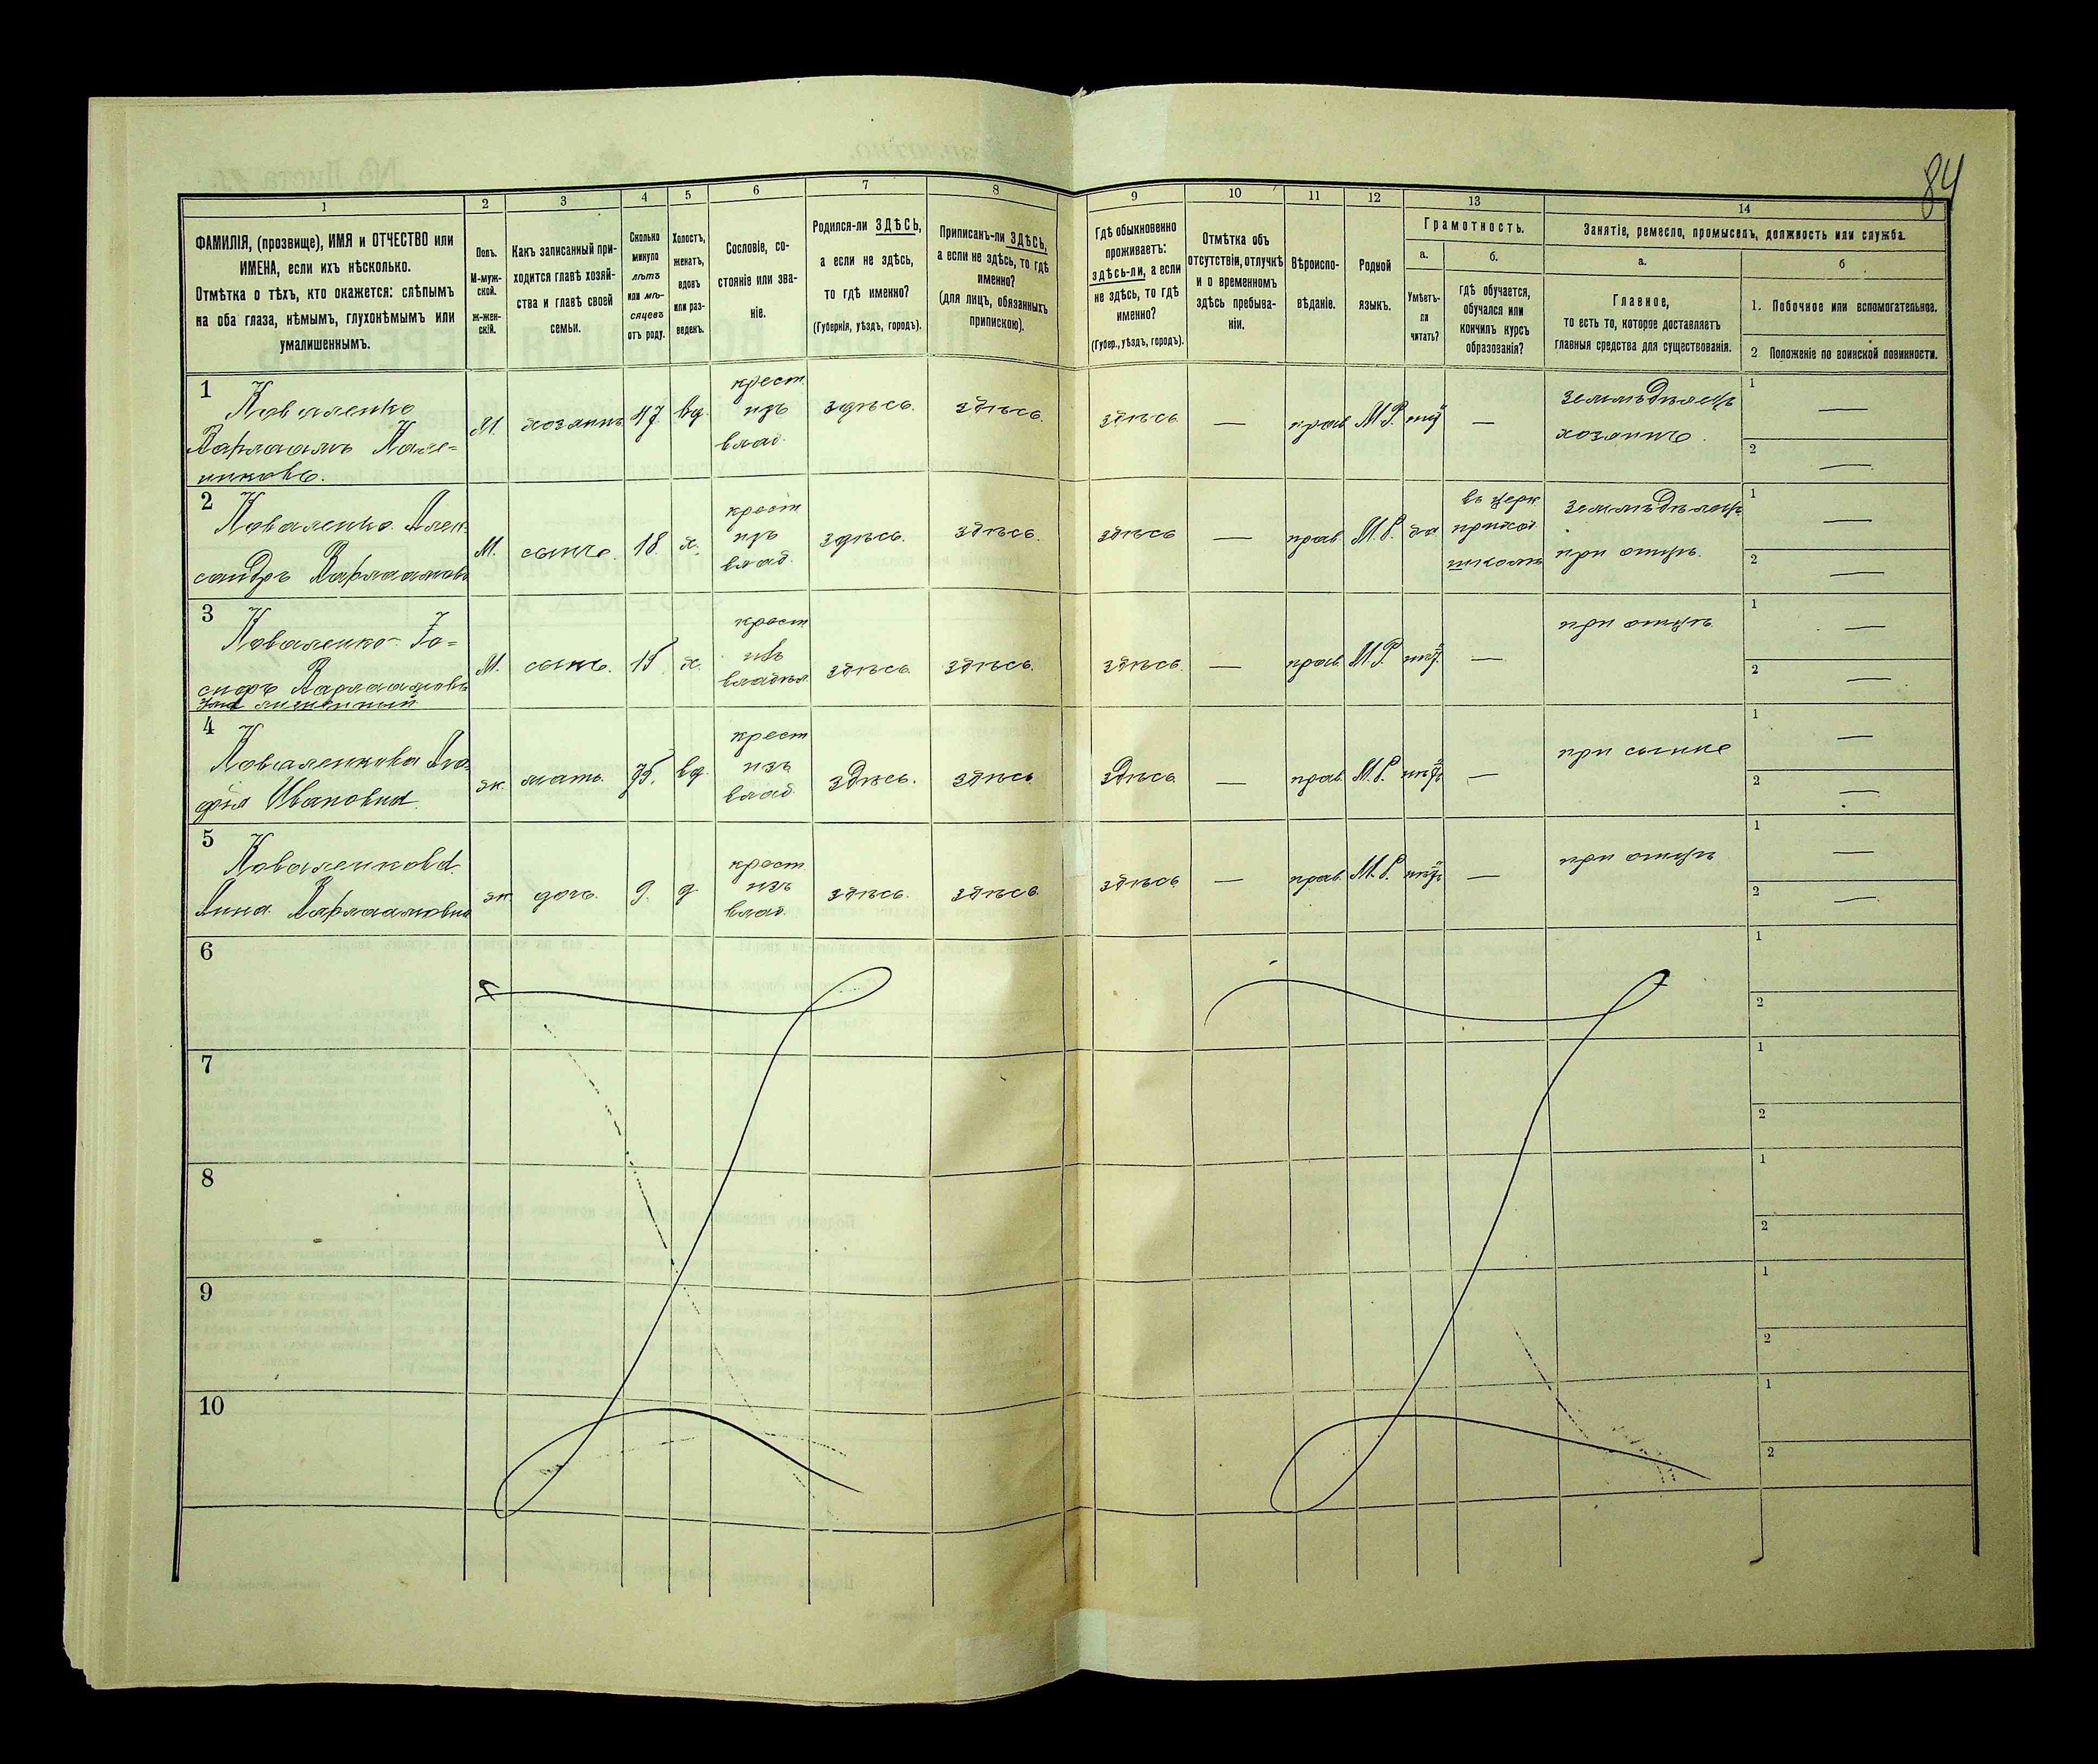 84
1 2 3 4 5 6 7 8 9 10 11 12 13 14
ФАМИЛІЯ, (прозвище), ИМЯ и ОТЧЕСТВО или
ИМЕНА, если ихъ нѣсколько.
Отмѣтка о тѣхъ, кто окажется: слѣпымъ
на оба глаза, нѣмымъ, глухонѣмымъ или
умалишеннымъ.
Полъ.
М-муж-
ской.
Ж-жен-
скій.
Какъ записанный при-
ходится главѣ хозяй-
ства и главѣ своей
семьи.
Сколько
минуло
лѣтъ
или мѣ-
сяцевъ
отъ роду.
Холостъ,
женатъ,
вдовъ
или раз-
веденъ.
Сословіе, со-
стояніе или зва-
ніе.
Родился-ли ЗДѢСЬ,
а если не здѣсь,
то гдѣ именно?
(Губернія, уѣздъ, городъ).
Приписанъ-ли ЗДѢСЬ,
а если не здѣсь, то гдѣ
именно?
(для лицъ, обязанныхъ
припискою).
Гдѣ обыкновенно
проживаетъ:
здѣсь-ли, а если
не здѣсь, то гдѣ
именно?
(Губер., уѣздъ, городъ).
Отмѣтка объ
отсутствіи, отлучкѣ
и о временномъ
здѣсь пребыва-
ніи.
Вѣроиспо-
вѣданіе.
Родной
языкъ.
Грамотность.
а.
Умѣетъ-
ли
читать?
б.
гдѣ обучается,
обучался или
кончилъ курсъ
образованія?
Занятіе, ремесло, промыселъ, должность или служба.
а.
Главное,
то есть то, которое доставляетъ
главныя средства для существованія.
б
1. Побочное или вспомогательное.
2 Положеніе по воинской повинности.
1
Коваленко
Варлаамъ Кале-
никовъ.
М. хозяинъ 47. вд.
крест.
изъ
влад.
здѣсь. здѣсь. здѣсь — прав М.Р. нѣтъ —
земледѣлецъ
хозяинъ.
1 —
2 —
2
Коваленко Алек-
сандръ Варлаамовъ
М. сынъ. 18. х.
крест
изъ
влад.
здѣсь. здѣсь. здѣсь — прав. М.Р. да
въ церк
приход.
школѣ
земледѣлецъ
при отцѣ.
1 —
2 —
3
Коваленко
Варлаамовъ
М. сынъ. 15. х.
крест
изъ
здѣсь здѣсь. здѣсь. — прав. М.Р. нѣтъ. —
при отцѣ
1 —
2 —
4
Коваленкова
Ивановна.
ж. мать. 75. вд.
крест
изъ
влад.
здѣсь. здѣсь здѣсь — прав. М.Р. нѣтъ —
при сынѣ
1 —
2 —
5
Коваленкова
Анна Варлаамовна
ж дочь. 9. д
крест
изъ
влад.
здѣсь. здѣсь здѣсь — прав. М.Р. нѣтъ —
при отцѣ
1 —
2 —
6
1
2
7
1
2
8
1
2
9
1
2
10
1
2